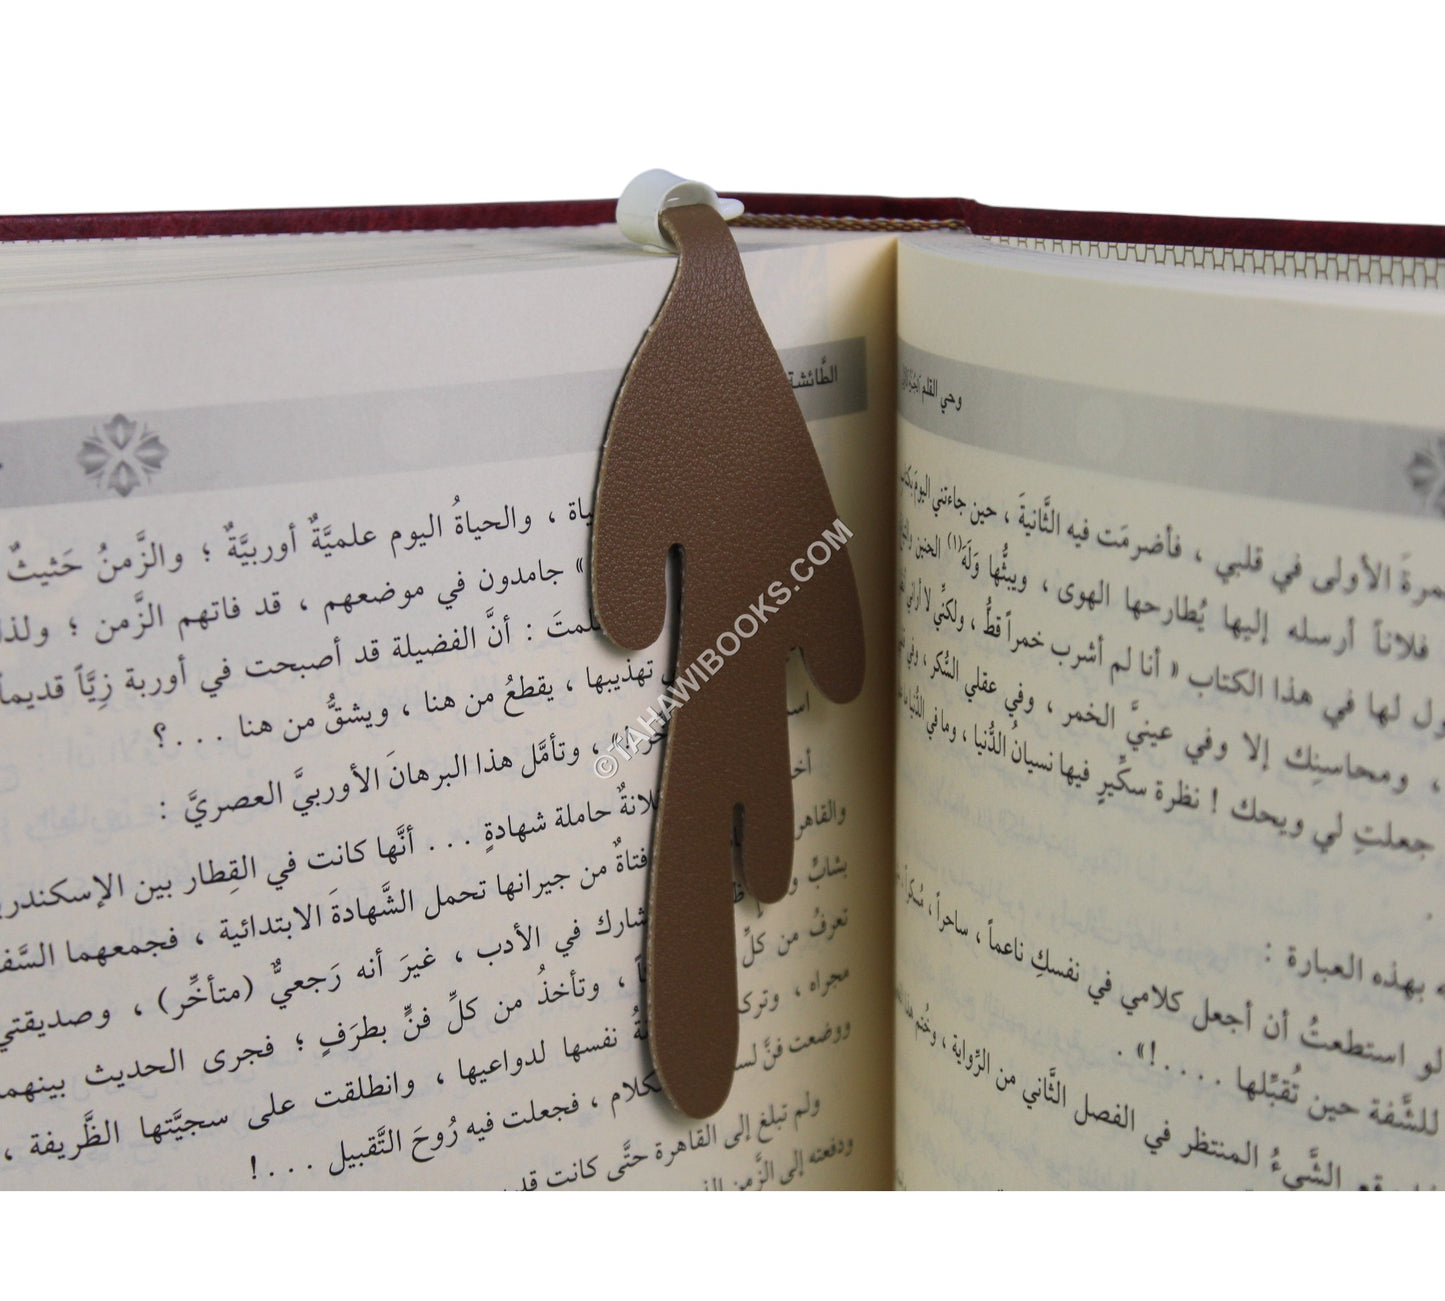 وحي القلم
مرةَ الأولى في قلبي ، فأضرمَت فيه الثَّانيةَ ، حين جاءتني اليومَ بكتاب
فلاناً أرسله إليها يُطارحها الهوى ، ويبثُّها وَلَهَ(١) الحنين
ول لها في هذا الكتاب « أنا لم أشرب خمراً قطُّ ، ولكنِّي لا أراني
، ومحاسنِك إلا وفي عينيَّ الخمر ، وفي عقلي السُّكر ، وفي
جعلتِ لي ويحك ! نظرة سكِّيرٍ فيها نسيانُ الدُّنيا ، وما في الدُّنيا
ه بهذه العبارة :
لو استطعتُ أن أجعل كلامي في نفسكِ ناعماً ، ساحراً ، مُسكراً ،
للشَّفة حين تُقبِّلها . . . .!» .
قع الشَّيءُ المنتظر في الفصل الثَّاني من الرِّواية ، وخُتم هذا
الطَّائشة
ياة ، والحياةُ اليوم علميَّةٌ أوربيَّةٌ ؛ والزَّمنُ حَثيثٌ
» جامدون في موضعهم ، قد فاتهم الزَّمن ؛ ولذلك
لمتَ : أنَّ الفضيلة قد أصبحت في أوربة زِيَّاً قديماً
تهذيبها ، يقطعُ من هنا ، ويشقُّ من هنا . . . .؟
، وتأمَّل هذا البرهانَ الأوربيَّ العصريَّ :
لانةٌ حاملة شهادةٍ . . . أنَّها كانت في القِطار بين الإسكندرية
والقاهر فتاةٌ من جيرانها تحمل الشَّهادةَ الابتدائية ، فجمعهما السَّفر
بشابٍّ شارك في الأدب ، غيرَ أنه رَجعيٌّ (متأخِّر) ، وصديقتي
تعرفُ من كلِّ ، وتأخذُ من كلِّ فنٍّ بطرَفٍ ؛ فجرى الحديث بينهما
مجراه ، وترك نفسها لدواعيها ، وانطلقت على سجيَّتها الظَّريفة ،
ووضعت فنَّ لس كلام ، فجعلت فيه رُوحَ التَّقبيل . . . .!
ولم تبلغ إلى القاهرة حتَّى كانت قد
ودفعته إلى الزَّمن
©TAHAWIBOOKS.COM